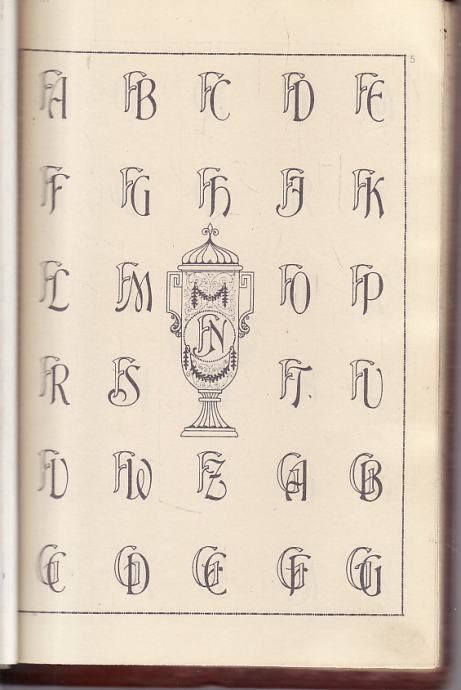 5
FA FB FC FD FE
FF FG FH FJ FK
FL FM FO FP
FN
FR FS FT. FU
FV FW FZ GA GB
GC GD GE GF GG